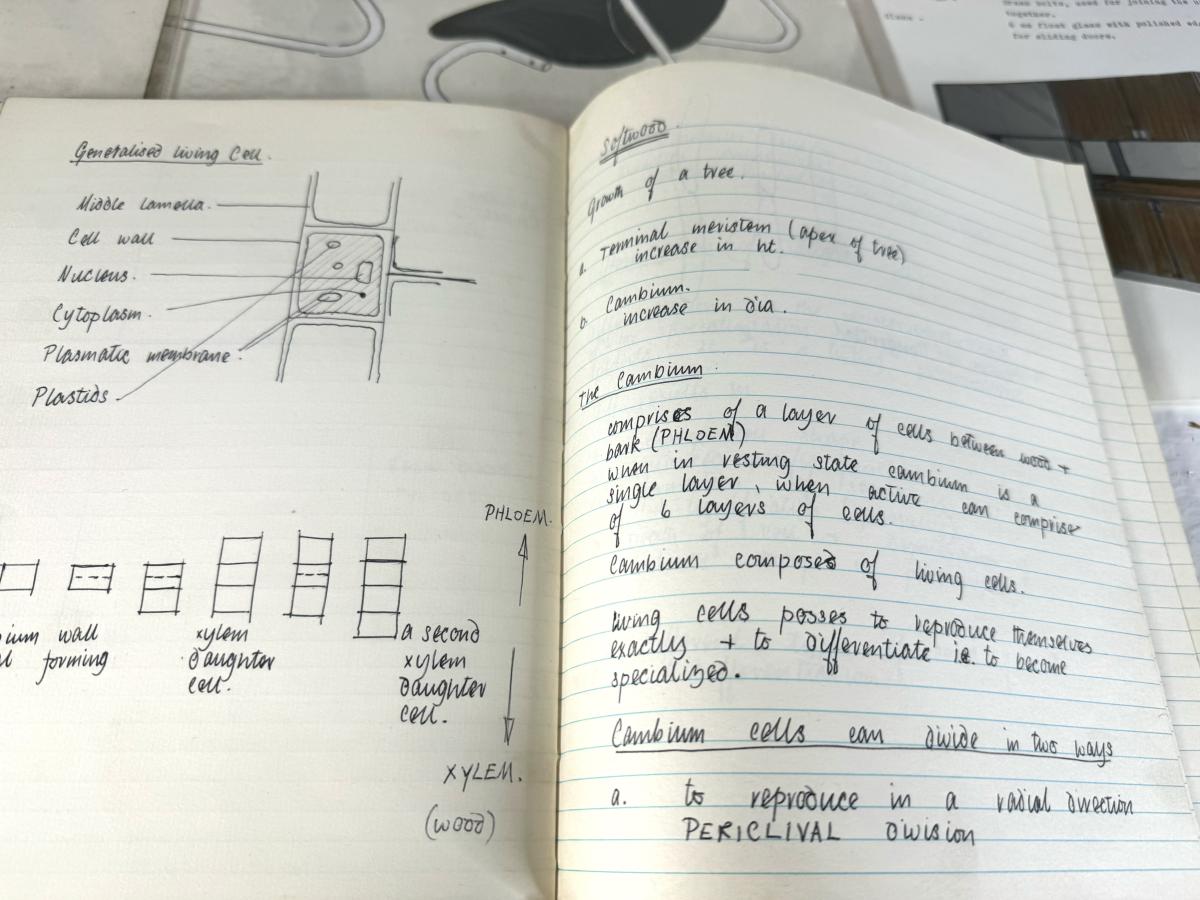 Generalised living Cell.
Middle lamella.
Cell wall
Nucleus.
Cytoplasm.
Plasmatic membrane.
Plastids
PHLOEM.
wall
forming
xylem
daughter
cell.
a second
xylem
daughter
cell.
XYLEM.
(wood)
Softwood.
Growth of a tree.
a. Terminal meristem (apex of tree)
increase in ht.
b. Cambium.
increase in dia.
The Cambium.
comprises of a layer of cells between wood +
bark (PHLOEM)
when in resting state cambium is a
single layer, when active can comprise
of 6 layers of cells.
Cambium composed of living cells.
living cells posses to reproduce themselves
exactly + to differentiate i.e. to become
specialized.
Cambium cells can divide in two ways
a. to reproduce in a radial direction
PERICLIVAL division
together.
6 mm float glass with polished
for sliding doors.